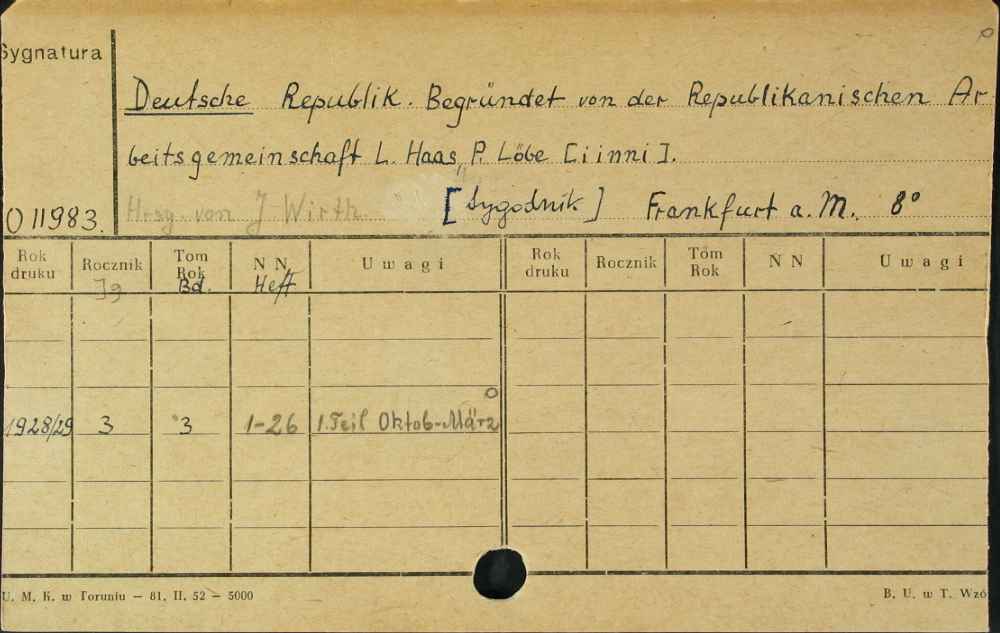 Sygnatura
Deutsche Republik. Begründet von der Republikanischen Ar
beitsgemeinschaft L. Haas, P. Löbe [i inni].
O 11983. Hrsg. von J Wirth [tygodnik] Frankfurt a. M. 8°
Rok druku Rocznik Tom Rok N N U w a g i Rok druku Rocznik Tom Rok N N U w a g i
Jg Bd. Heft
1928/29 3 3 1-26 1. Teil Oktob-März
U. M. K. w Toruniu — 81. II. 52 — 5000 B. U. w T. Wzó